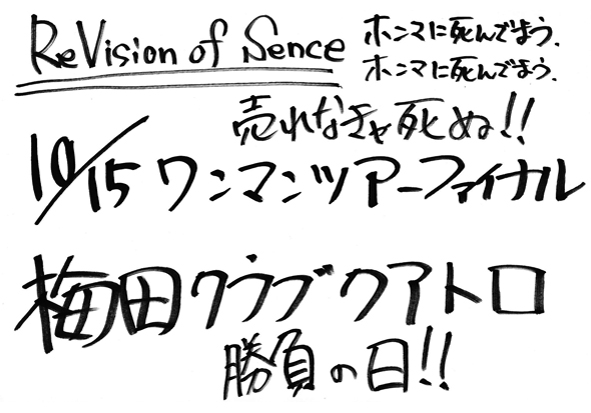 ReVision of Sence
ホンマに死んでまう.
ホンマに死んでまう.
売れなきゃ死ぬ!!
10/15 ワンマンツアーファイナル
梅田クラブクアトロ
勝負の日!!